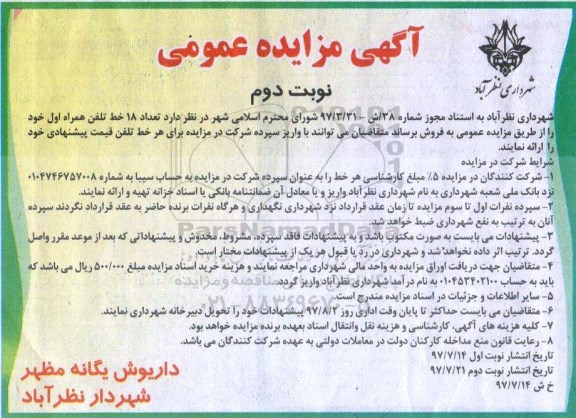 شهرداری نظرآباد
آگهی مزایده عمومی
نوبت دوم
شهرداری نظرآباد به استناد مجوز شماره ۳۸/ش – ۹۷/۳/۳۱ شورای محترم اسلامی شهر در نظر دارد تعداد ۱۸ خط تلفن همراه اول خود
را از طریق مزایده عمومی به فروش برساند متقاضیان می توانند با واریز سپرده شرکت در مزایده برای هر خط تلفن قیمت پیشنهادی خود
را ارائه نمایند.
شرایط شرکت در مزایده
۱- شرکت کنندگان در مزایده ۵٪ مبلغ کارشناسی هر خط را به عنوان سپرده شرکت در مزایده به حساب سیبا به شماره ۰۱۰۴۷۴۶۷۵۷۰۰۸
نزد بانک ملی شعبه شهرداری به نام شهرداری نظرآباد واریز و یا معادل آن ضمانتنامه بانکی یا اسناد خزانه تهیه و ارائه نمایند.
۲- سپرده نفرات اول تا سوم مزایده تا زمان عقد قرارداد نزد شهرداری نگهداری و هرگاه نفرات برنده حاضر به عقد قرارداد نگردند سپرده
آنان به ترتیب به نفع شهرداری ضبط خواهد شد.
۳- پیشنهادات می بایست به صورت مکتوب باشد و به پیشنهادات فاقد سپرده، مشروط، مخدوش و پیشنهاداتی که بعد از موعد مقرر واصل
گردد. ترتیب اثر داده نخواهد شد و شهرداری در رد یا قبول هر یک از پیشنهادات مختار است.
۴- متقاضیان جهت دریافت اوراق مزایده به واحد مالی شهرداری مراجعه نمایند و هزینه خرید اسناد مزایده مبلغ ۵۰۰/۰۰۰ ریال می باشد که
باید به حساب ۰۱۰۴۵۳۴۰۲۱۰۰ به نام درآمد شهرداری نظرآباد واریز گردد.
۵- سایر اطلاعات و جزئیات در اسناد مزایده مندرج است.
۶- متقاضیان می بایست حداکثر تا پایان وقت اداری روز ۹۷/۸/۲ پیشنهادات خود را تحویل دبیرخانه شهرداری نمایند.
۷- کلیه هزینه های آگهی، کارشناسی و هزینه نقل وانتقال اسناد بعهده برنده مزایده خواهد بود.
۸- رعایت قانون منع مداخله کارکنان دولت در معاملات دولتی به عهده شرکت کنندگان می باشد.
تاریخ انتشار نوبت اول ۹۷/۷/۱۴
تاریخ انتشار نوبت دوم ۹۷/۷/۲۱
خ ش ۹۷/۷/۱۴
داریوش یگانه مظهر
شهردار نظرآباد
ParsNamadData
۰۲۱-۸۸۳۴۹۶۷۰